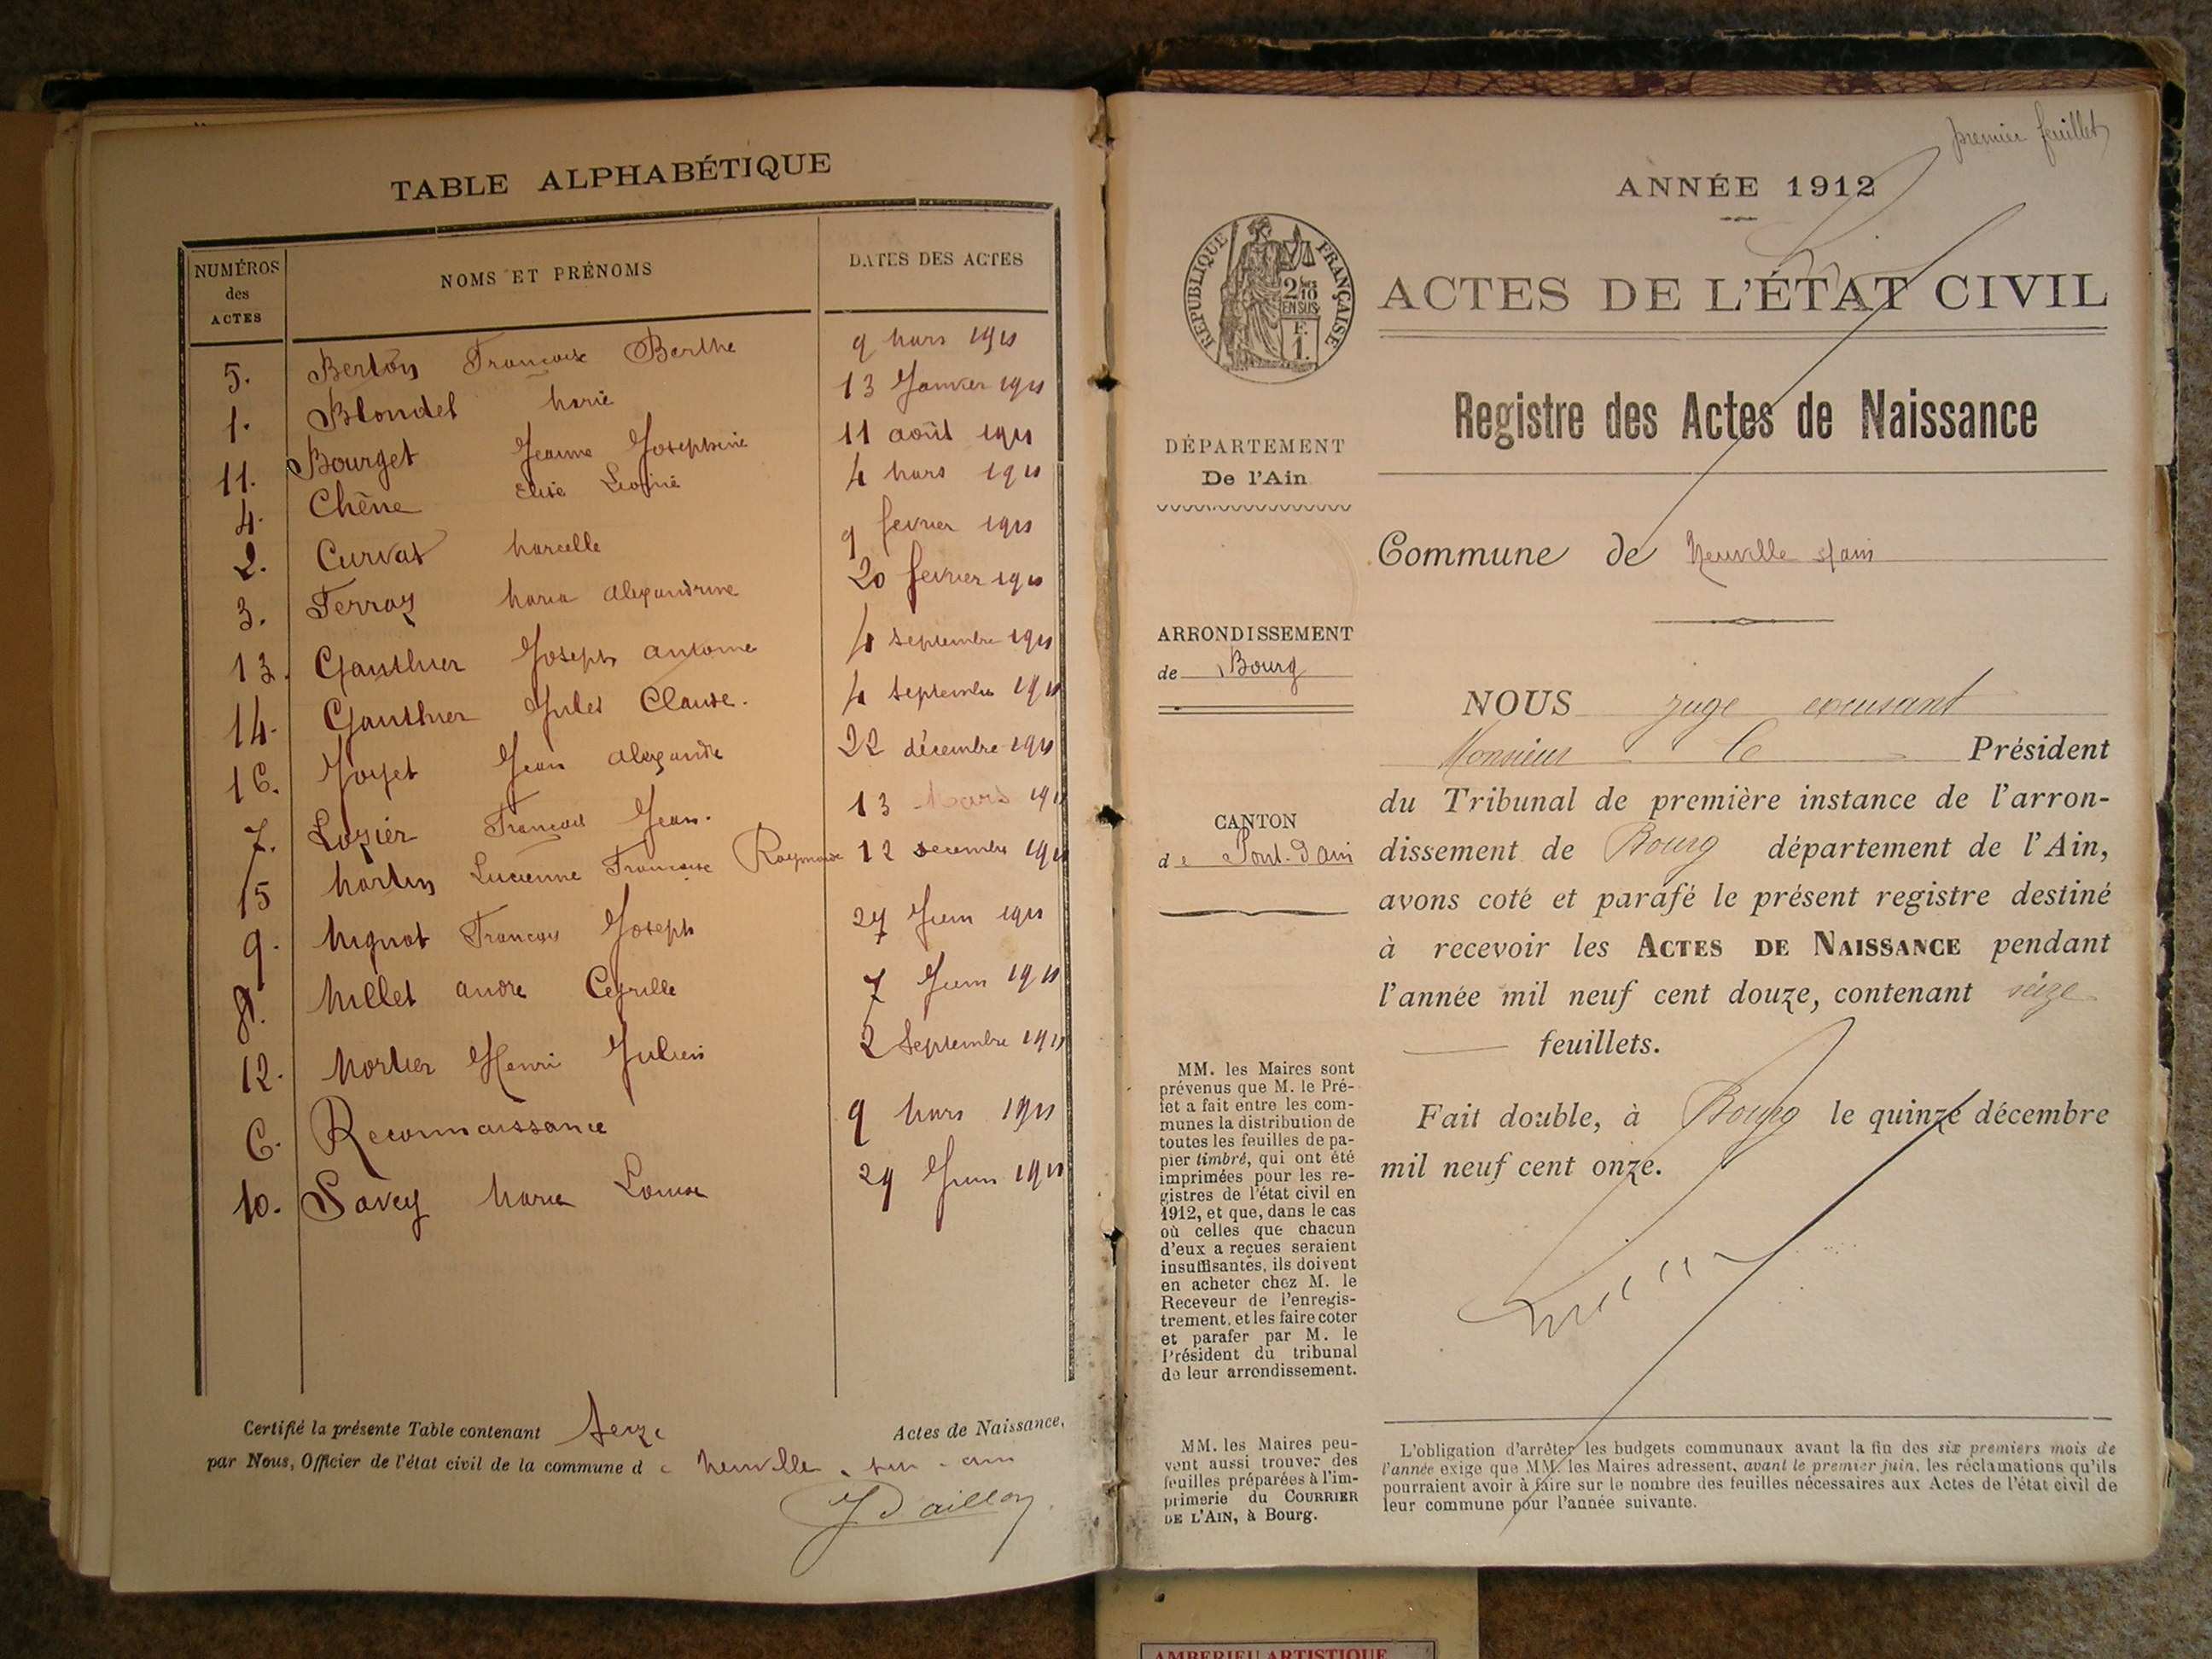 TABLE ALPHABÉTIQUE
NUMÉROS
des
ACTES
NOMS ET PRÉNOMS
DATES DES ACTES
5. Berton Françoise Berthe 9 Mars 1911
1. Blondel Marie 13 Janvier 1911
11. Bourget Jeanne Josephine 11 août 1911
4. Chêne Elise 4 Mars 1911
2. Curvat Marcelle 9 fevrier 1911
3. Ferraz Maria Alexandrine 20 fevrier 1911
13. Gauthier Joseph Antoine 4 septembre 1911
14. Gauthier Jules Claude. 4 septembre 1911
16. Joyet Jean Alexandre 22 décembre 1911
7. Lozier François Jean. 13 Mars 1911
15 Martin Lucienne Francoise Raymonde 12 decembre 1911
9. Mignot François Joseph 27 Juin 1911
8. Millet André Cyrille 7 Juin 1911
12. Mortier Henri Julien 2 Septembre 1911
6. Reconnaissance 9 Mars 1911
10. Savey Maria Louise 29 Juin 1911
Certifié la présente Table contenant seize Actes de Naissance,
par Nous, Officier de l'état civil de la commune de Neuville-sur-ain
premier feuillet
ANNÉE 1912
RÉPUBLIQUE FRANÇAISE
2/10
EN SUS
F.
1.
ACTES DE L'ÉTAT CIVIL
Registre des Actes de Naissance
DÉPARTEMENT
De l'Ain
Commune de Neuville s/ain
ARRONDISSEMENT
de Bourg
CANTON
de Pont-d'ain
NOUS juge excusant
Monsieur le Président
du Tribunal de première instance de l'arron-
dissement de Bourg département de l'Ain,
avons coté et parafé le présent registre destiné
à recevoir les ACTES DE NAISSANCE pendant
l'année mil neuf cent douze, contenant seize
feuillets.
Fait double, à Bourg le quinze décembre
mil neuf cent onze.
MM. les Maires sont
prévenus que M. le Pré-
fet a fait entre les com-
munes la distribution de
toutes les feuilles de pa-
pier timbré, qui ont été
imprimées pour les re-
gistres de l'état civil en
1912, et que, dans le cas
où celles que chacun
d'eux a reçues seraient
insuffisantes, ils doivent
en acheter chez M. le
Receveur de l'enregis-
trement, et les faire coter
et parafer par M. le
Président du tribunal
de leur arrondissement.
MM. les Maires peu-
vent aussi trouver des
feuilles préparées à l'im-
primerie du COURRIER
DE L'AIN, à Bourg.
L'obligation d'arrêter les budgets communaux avant la fin des six premiers mois de
l'année exige que MM. les Maires adressent, avant le premier juin, les réclamations qu'ils
pourraient avoir à faire sur le nombre des feuilles nécessaires aux Actes de l'état civil de
leur commune pour l'année suivante.
AMBERIEU ARTISTIQUE